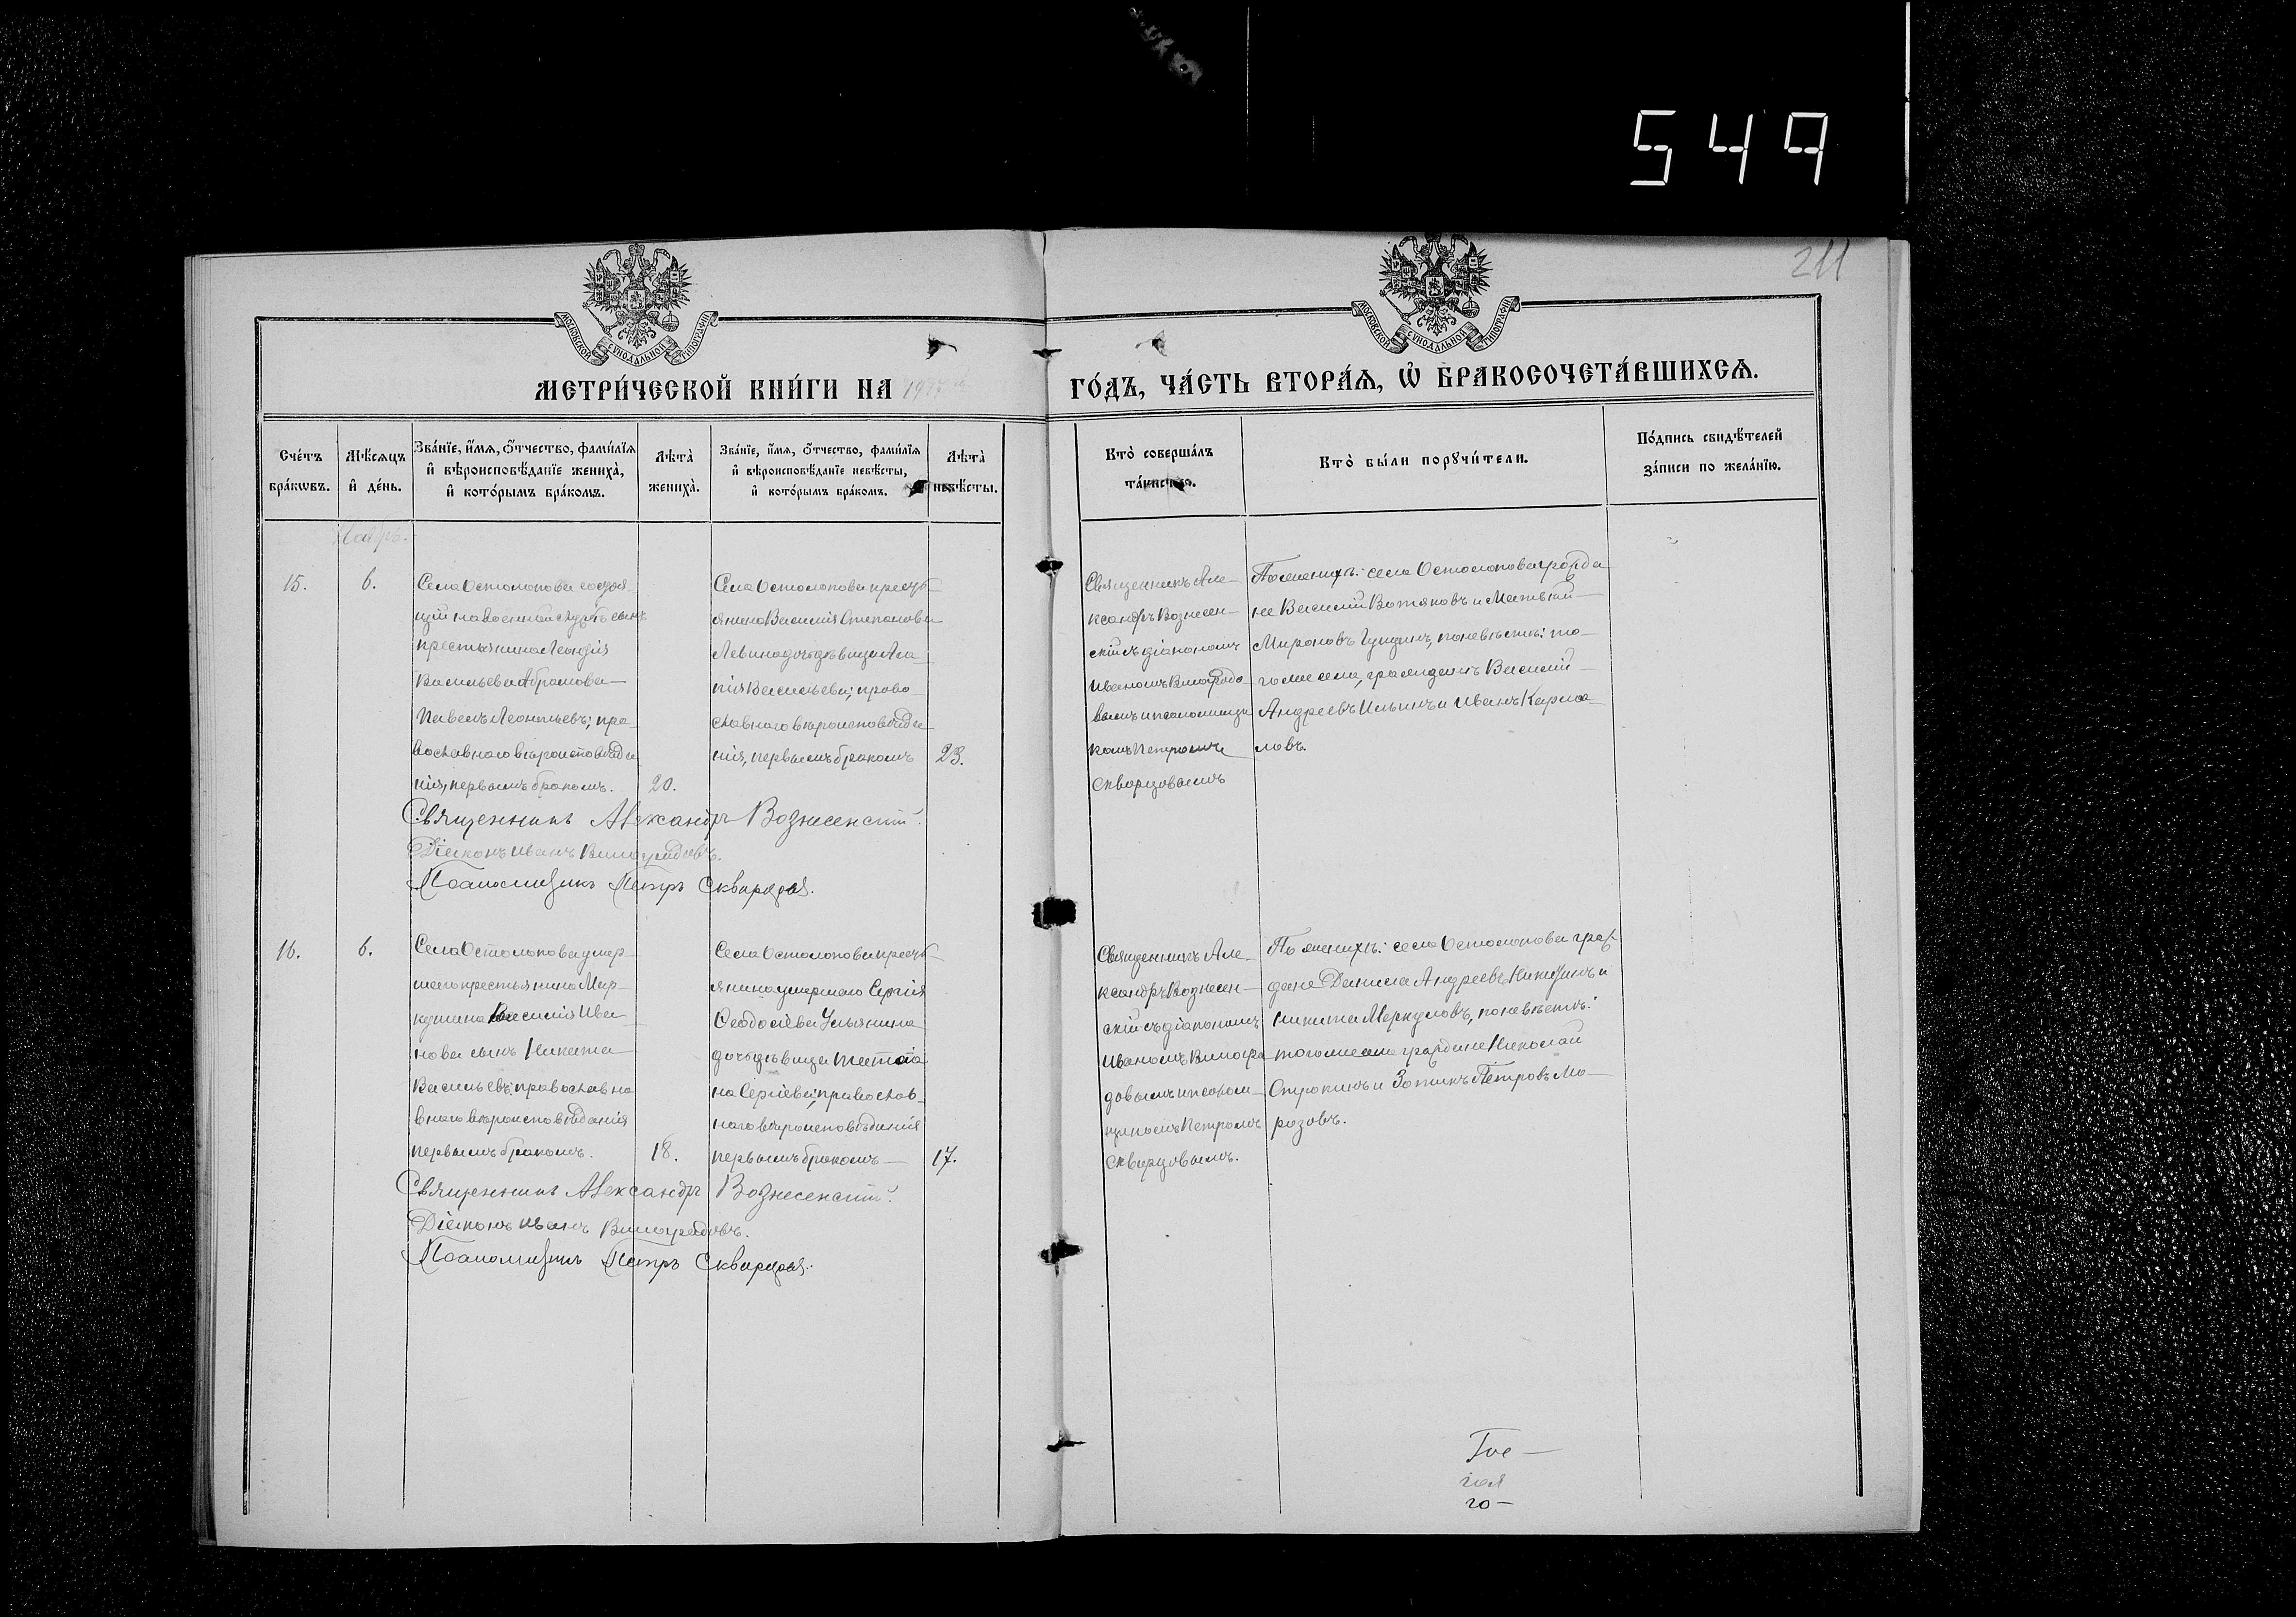 549
211
МОСКОВСКОЙ СѴНОДАЛЬНОЙ ТИПОГРАФІИ
МОСКОВСКОЙ СѴНОДАЛЬНОЙ ТИПОГРАФІИ
МЕТРИ́ЧЕСКОЙ КНИ́ГИ НА 1917 ГО́ДЪ, ЧА́СТЬ ВТОРА́Ѧ, Ѽ БРАКОСОЧЕТА́ВШИХСѦ.
Сче́тъ бра́кѡвъ.
Мѣ́сѧцъ и҆ де́нь.
Зва́нїе, и҆́мѧ, ѻ҆́тчество, фами́лїѧ и҆ вѣроисповѣ́данїе жениха̀, и҆ кото́рымъ бра́комъ.
Лѣта̀ жениха̀.
Зва́нїе, и҆́мѧ, ѻ҆́тчество, фами́лїѧ и҆ вѣроисповѣ́данїе невѣ́сты, и҆ кото́рымъ бра́комъ.
Лѣта̀ невѣ́сты.
Кто̀ соверша́лъ та́инство.
Кто̀ бы́ли порꙋчи́тели.
По́дпись свидѣ́телей за́писи по жела́нїю.
15.
6.
Села Остолопова состоя
щій на военной службѣ сынъ
крестьянина Леонтія
Васильева Абрамова
Павелъ Леонтьевъ; пра
вославнаго вѣроисповѣда
нія, первымъ бракомъ.
20.
Села Остолопова кресть
янина Василія Степанова
Левина дочь дѣвица Ага
пія Васильева; право
славнаго вѣроисповѣда
нія, первымъ бракомъ
23.
Священникъ Але-
ксандръ Вознесен-
скій съ діакономъ
Иваномъ Виноградо
вымъ и псаломщи
комъ Петромъ
Скворцовымъ
По женихѣ: села Остолопова гражда
не Василій Вотяковъ и Матвѣй
Мироновъ Гущинъ, по невѣстѣ: то
гоже села, гражданъ Василій
Андреевъ Ильинъ и Иванъ Карма
ловъ.
Священникъ Александръ Вознесенскій.
Діаконъ Иванъ Виноградовъ.
Псаломщикъ Петръ Скворцовъ.
16.
6.
Села Остолопова умер
шаго крестьянина Мер
кулина Василія Ива
нова сынъ Никита
Васильевъ; православна
внаго вѣроисповѣданія
первымъ бракомъ.
18.
Села Остолопова кресть
янина умершаго Сергія
Ѳеодосіева Ульянина
дочь дѣвица Татіа
на Сергіева; православ
наго вѣроисповѣданія
первымъ бракомъ
17.
Священникъ Але-
ксандръ Вознесен-
скій съ діакономъ
Иваномъ Виногра
довымъ и псалом
щикомъ Петромъ
Скворцовымъ.
По женихѣ: села Остолопова граж
дане Данила Андреевъ Никишинъ и
Никита Меркуловъ, по невѣстѣ:
тогоже села граждане Николай
Строкинъ и Зотикъ Петровъ Мо
розовъ.
Священникъ Александръ Вознесенскій.
Діаконъ Иванъ Виноградовъ.
Псаломщикъ Петръ Скворцовъ.
го-